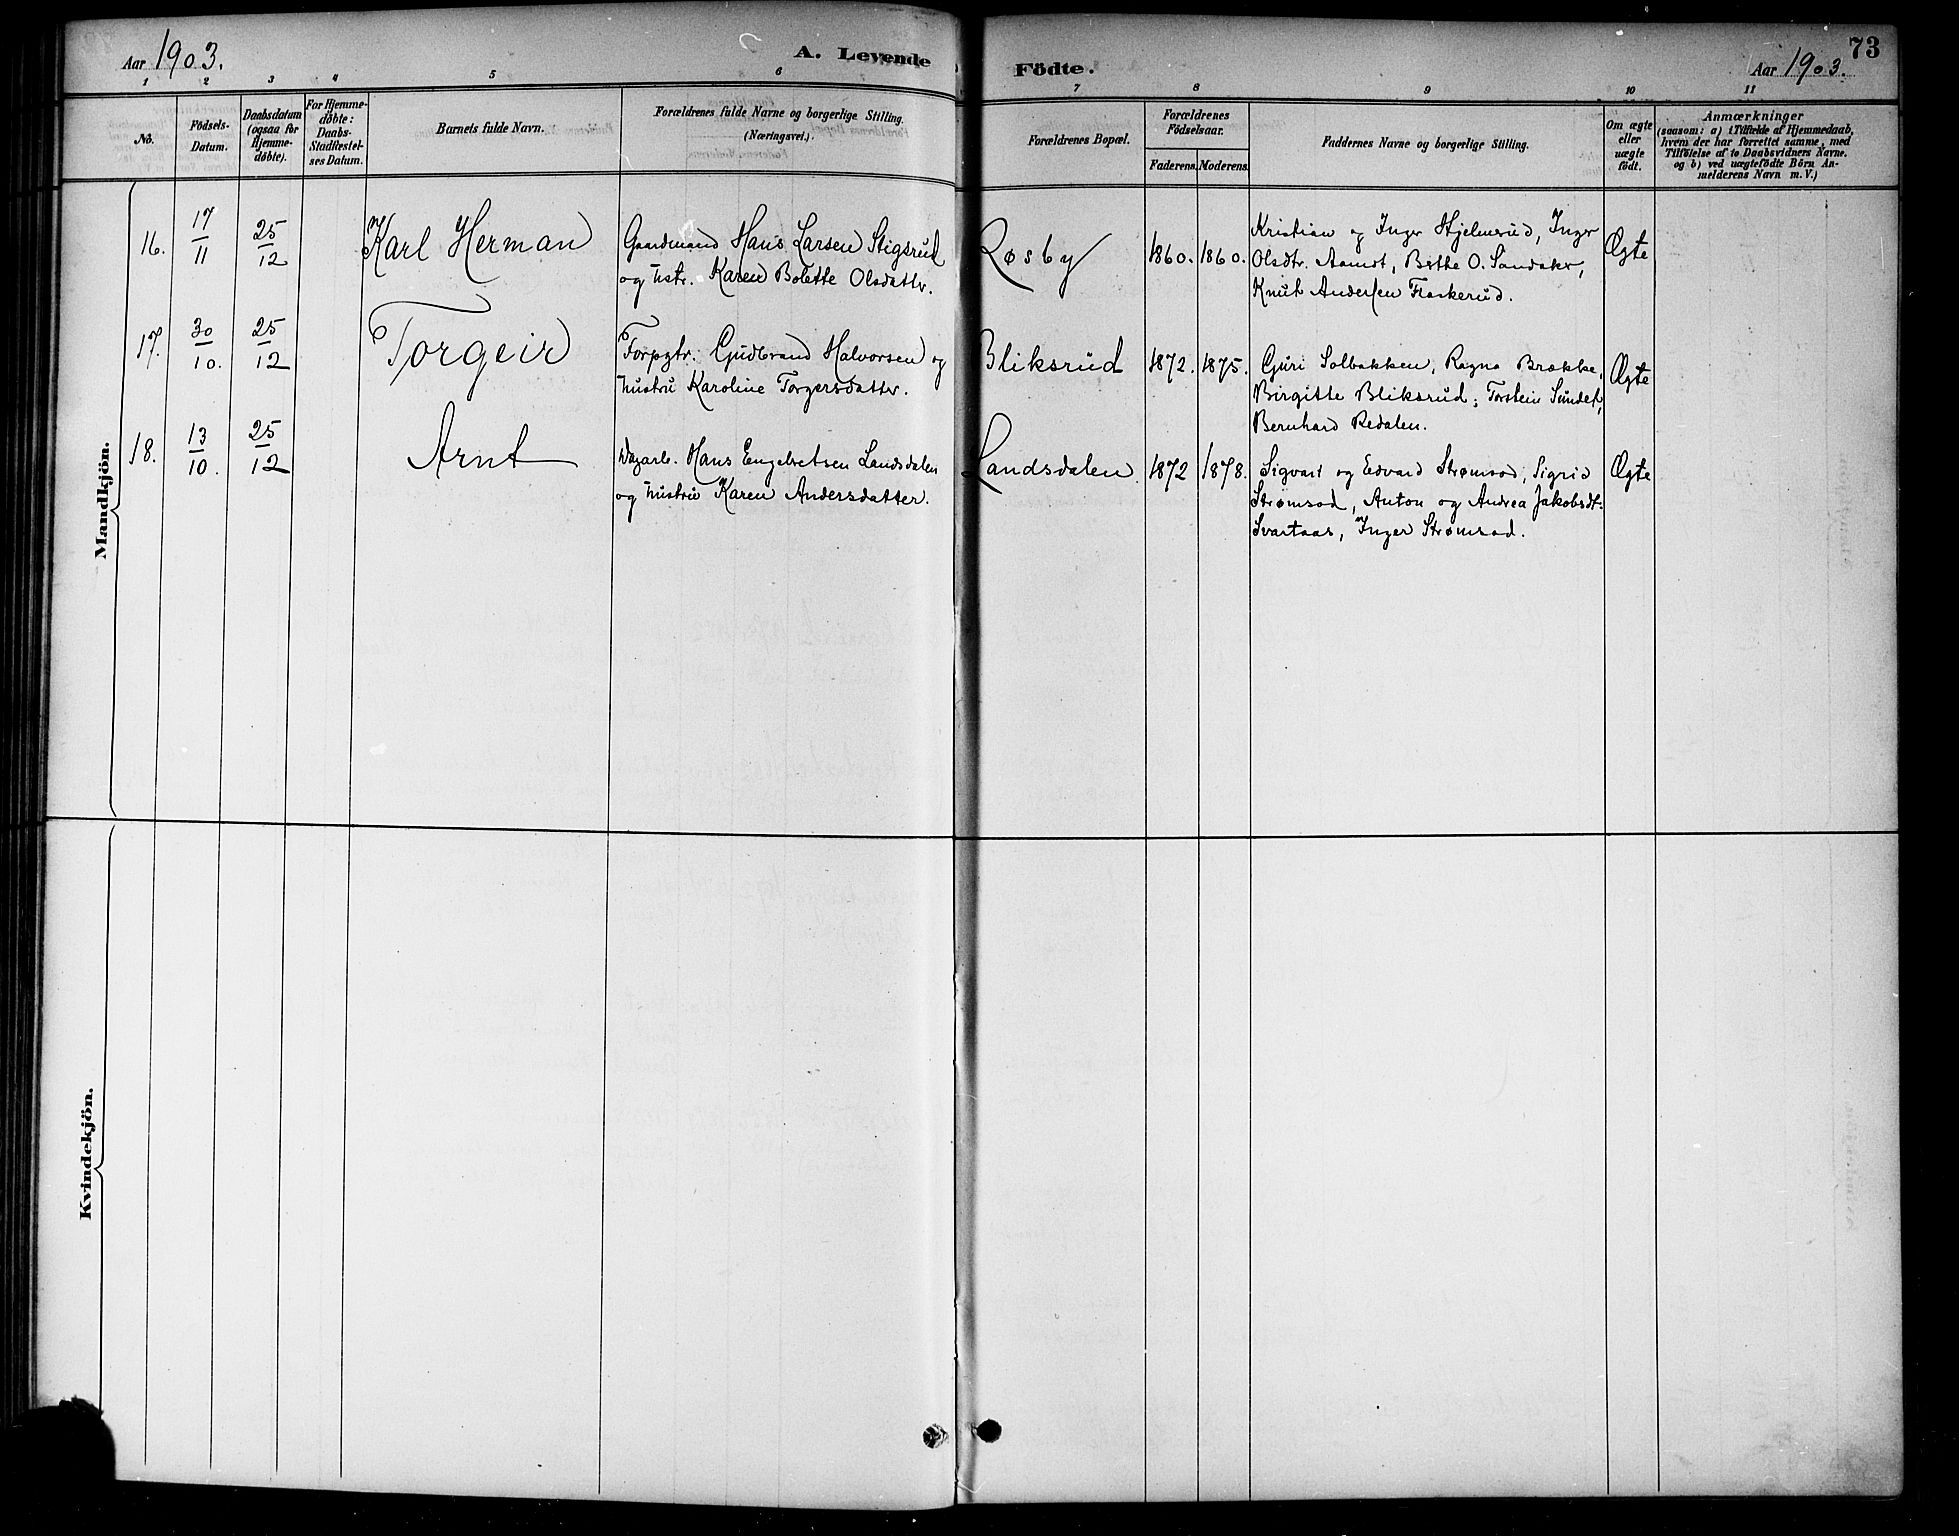 Aar 1903.
A. Levende
Födte.
Aar 1903.
73
1 2 3 4 5 6 7 8 9 10 11
No.
Födsels-
Datum.
Daabsdatum
(ogsaa for
Hjemme-
døbte).
For Hjemme-
døbte:
Daabs-
Stadfæstel-
ses Datum.
Barnets fulde Navn.
Forældrenes fulde Navne og borgerlige Stilling.
(Næringsvei.)
Forældrenes Bopæl.
Forældrenes
Födselsaar.
Faderens. Moderens.
Faddernes Navne og borgerlige Stilling.
Om ægte
eller
uægte
født.
Anmærkninger
(saasom: a) i Tilfælde af Hjemmedaab,
hvem der har forrettet samme, med
Tilföielse af to Daabsvidners Navne.
og b) ved uægtefödte Börn An-
melderens Navn m. V.)
Mandkjön.
16. 17/11 25/12 Karl Herman
Gaardmand Hans Larsen Stigsrud
og hstr. Karen Bolette Olsdatter.
Røsby 1860. 1860.
Kristian og Inger Hjelmerud, Inger
Olsdtr. Aamot, Berthe O. Sandaker,
Knut Andersen Flaskerud.
Ægte
17. 30/10. 25/12 Torgeir
Forpgtr. Gudbrand Halvorsen og
hustru Karoline Torgersdatter.
Bliksrud 1872. 1875.
Guri Solbakken, Ragna Brække,
Birgitte Bliksrud; Torstein Sundet,
Bernhard Redalen.
Ægte
18. 13/10. 25/12 Arnt
Dagarb. Hans Engebretsen Landsdalen
og hustru Karen Andersdatter.
Landsdalen. 1872 1878.
Sigvart og Edvard Strømsod, Sigrid
Strømsod, Anton og Andrea Jakobsdt.
Svartaas, Inger Strømsod.
Ægte
Kvindekjön.